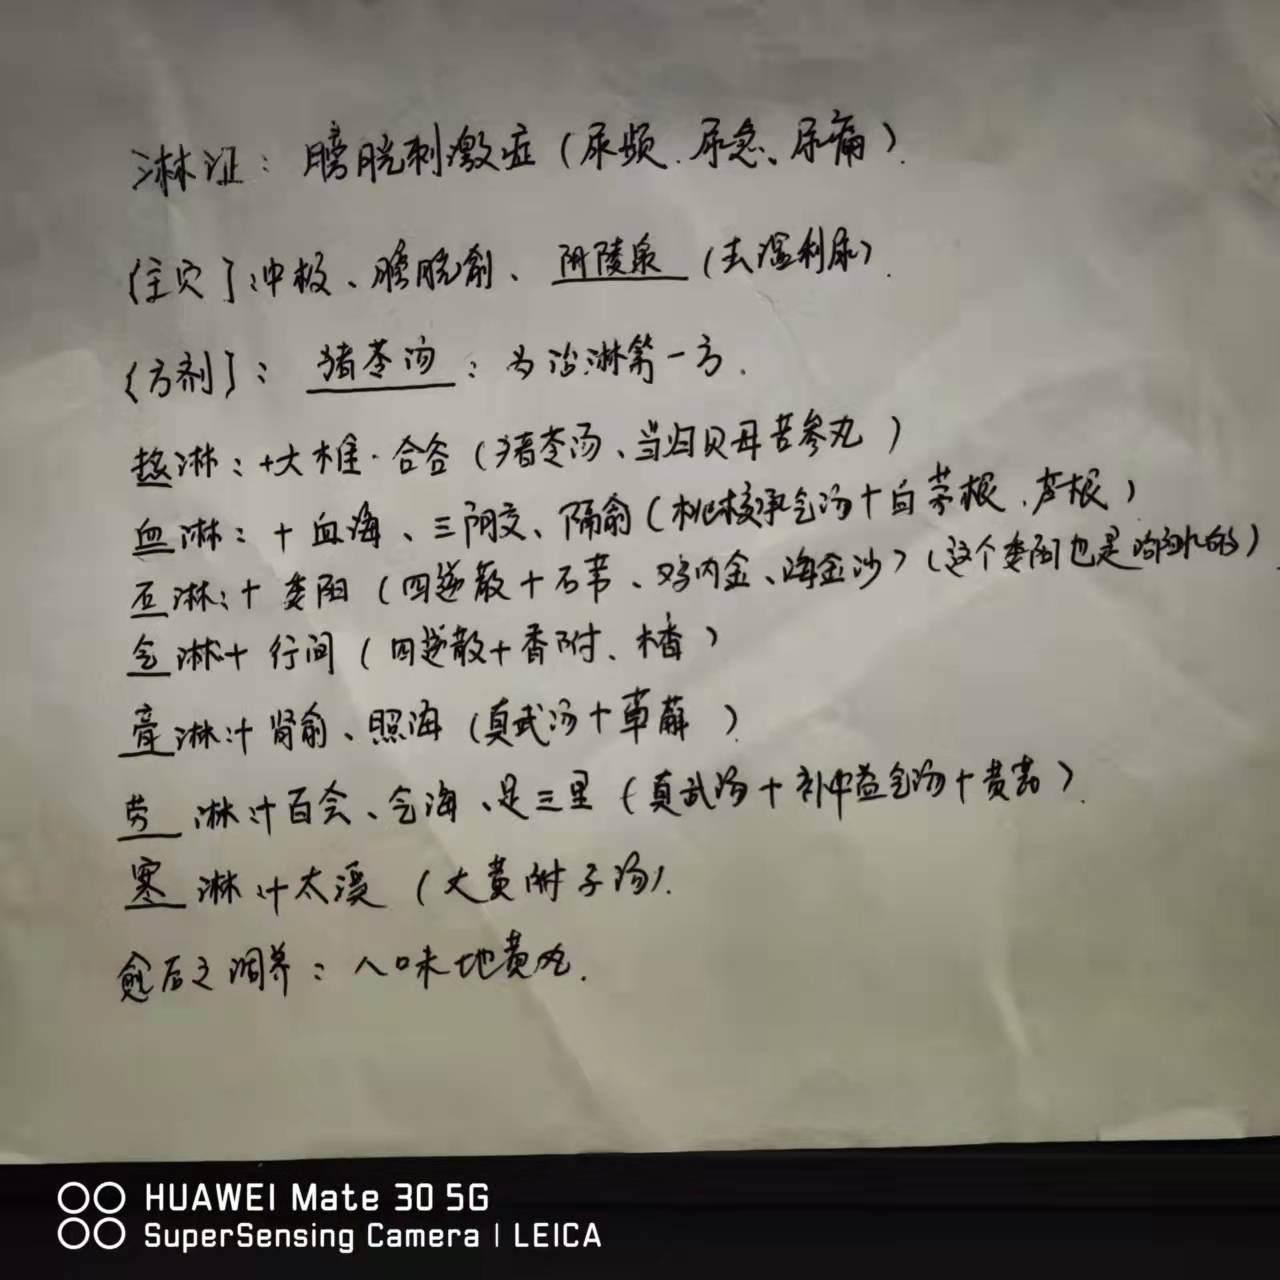 淋证：膀胱刺激症（尿频、尿急、尿痛）.
〔主穴〕：中极、膀胱俞、阴陵泉（去湿利尿）.
〔方剂〕：猪苓汤：为治淋第一方.
热淋：+大椎·合谷（猪苓汤、当归贝母苦参丸）
血淋：+血海、三阴交、隔俞（桃核承气汤+白茅根、芦根）
石淋：+委阳（四逆散+石苇、鸡内金、海金沙）（这个委阳也是的）
气淋+行间（四逆散+香附、木香）
膏淋:+肾俞、照海（真武汤+萆薢）
劳淋:+百会、气海、足三里（真武汤+补中益气汤+黄芪）.
寒淋:+太溪（大黄附子汤）.
愈后之调养：八味地黄丸.
HUAWEI Mate 30 5G
SuperSensing Camera | LEICA